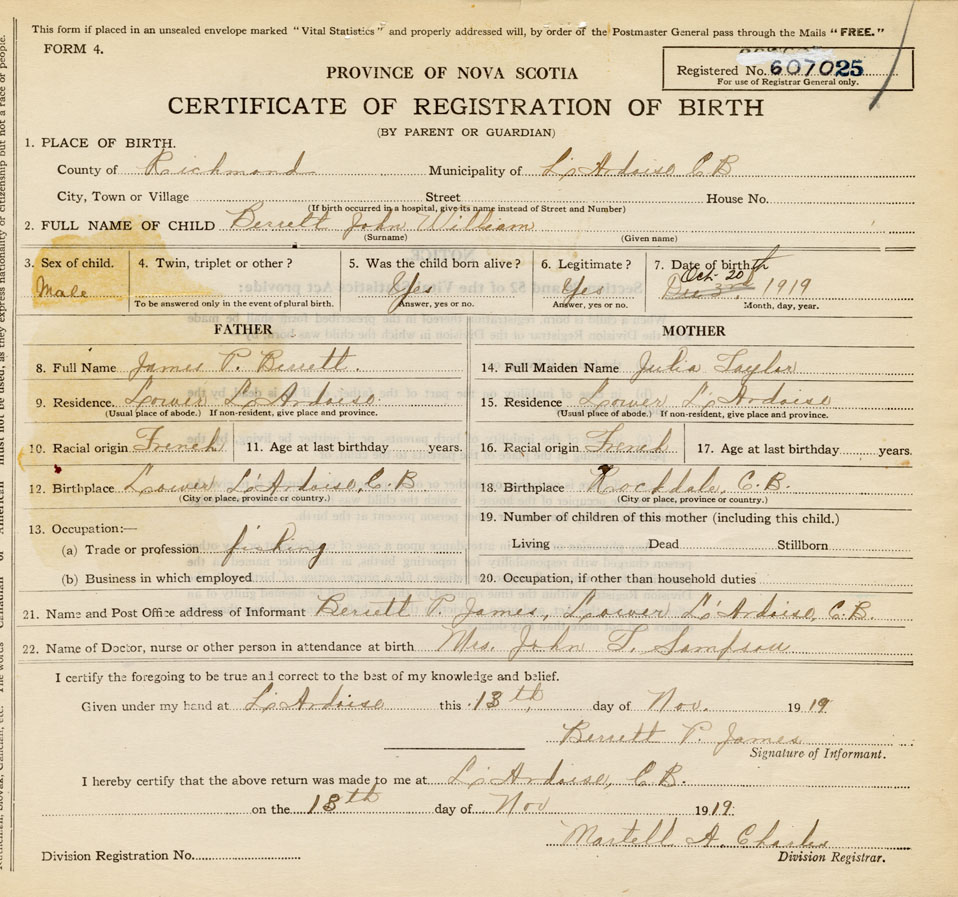 This form if placed in an unsealed envelope marked "Vital Statistics" and properly addressed will, by order of the Postmaster General pass through the Mails "FREE."
FORM 4.
Registered No. 607025
For use of Registrar General only.
PROVINCE OF NOVA SCOTIA
CERTIFICATE OF REGISTRATION OF BIRTH
(BY PARENT OR GUARDIAN)
1. PLACE OF BIRTH.
County of Richmond Municipality of L'Ardoise C.B
City, Town or Village Street House No.
(If birth occurred in a hospital, give its name instead of Street and Number)
2. FULL NAME OF CHILD Berrett John William
(Surname) (Given name)
3. Sex of child. 4. Twin, triplet or other? 5. Was the child born alive? 6. Legitimate? 7. Date of birth
Male Yes Yes Oct. 20 1919
To be answered only in the event of plural birth. Answer, yes or no. Answer, yes or no. Month, day, year.
FATHER MOTHER
8. Full Name James P. Berrett. 14. Full Maiden Name Julia Taylor
9. Residence. Lower L'Ardoise. 15. Residence Lower L'Ardoise
(Usual place of abode.) If non-resident, give place and province. (Usual place of abode.) If non-resident, give place and province.
10. Racial origin French 11. Age at last birthday years. 16. Racial origin French 17. Age at last birthday years.
12. Birthplace Lower L'Ardoise, C.B. 18. Birthplace Rockdale, C.B.
(City or place, province or country.) (City or place, province or country.)
13. Occupation:— 19. Number of children of this mother (including this child.)
(a) Trade or profession fishing Living Dead Stillborn
(b) Business in which employed 20. Occupation, if other than household duties
21. Name and Post Office address of Informant Berrett P. James, Lower L'Ardoise, C.B.
22. Name of Doctor, nurse or other person in attendance at birth Mrs. John T. Sampson
I certify the foregoing to be true and correct to the best of my knowledge and belief.
Given under my hand at L'Ardoise this 13th day of Nov. 1919
Berrett P. James
Signature of Informant.
I hereby certify that the above return was made to me at L'Ardoise, C.B.
on the 13th day of Nov 1919.
Martell A. Charles
Division Registration No. Division Registrar.